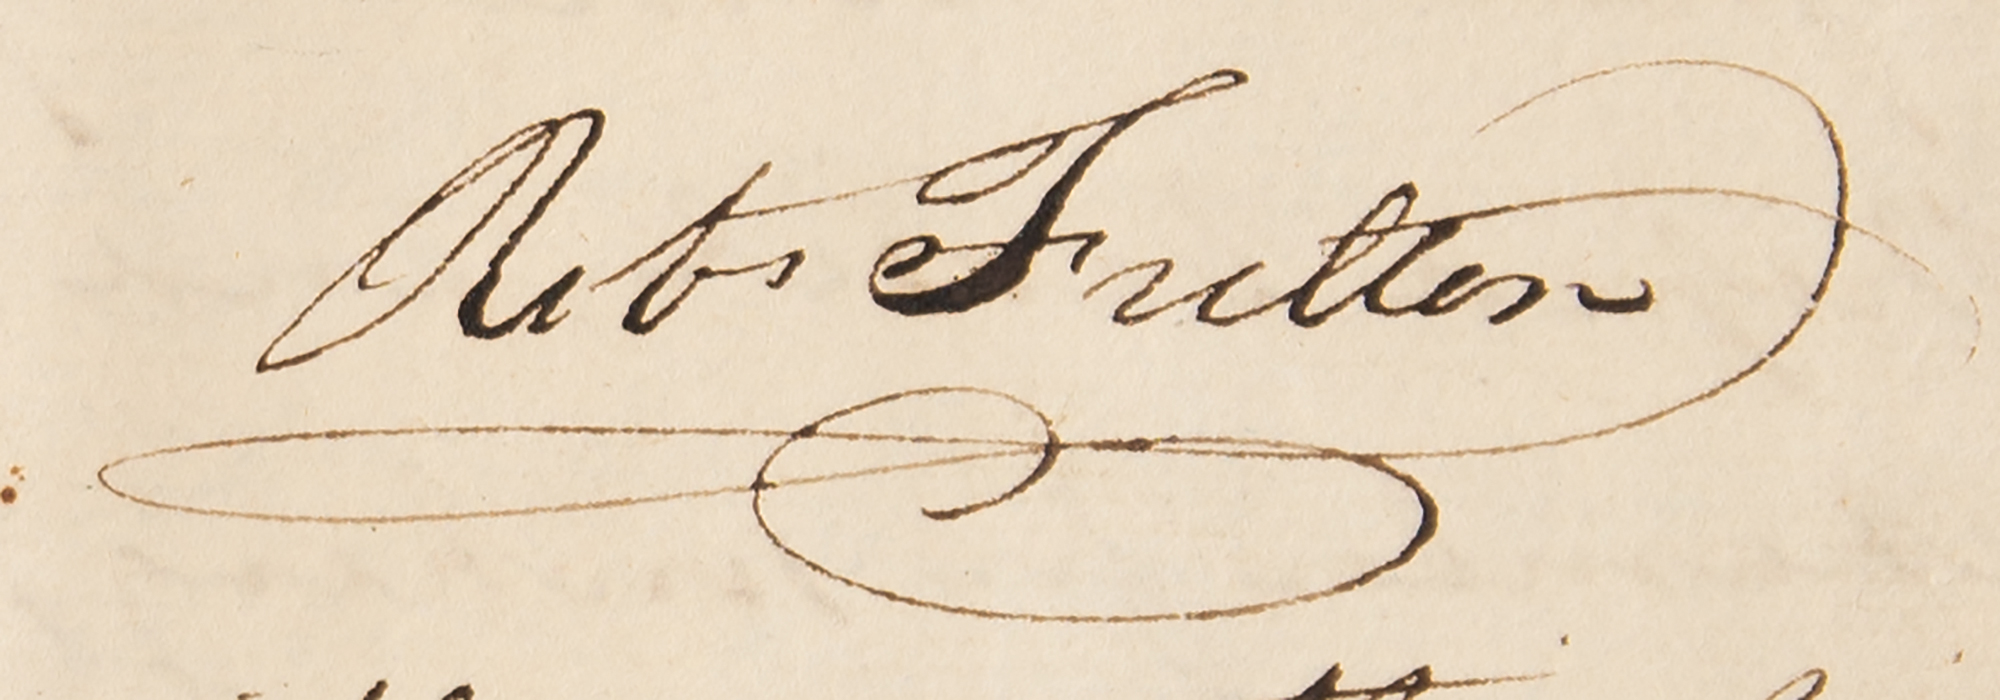 Robt Fulton